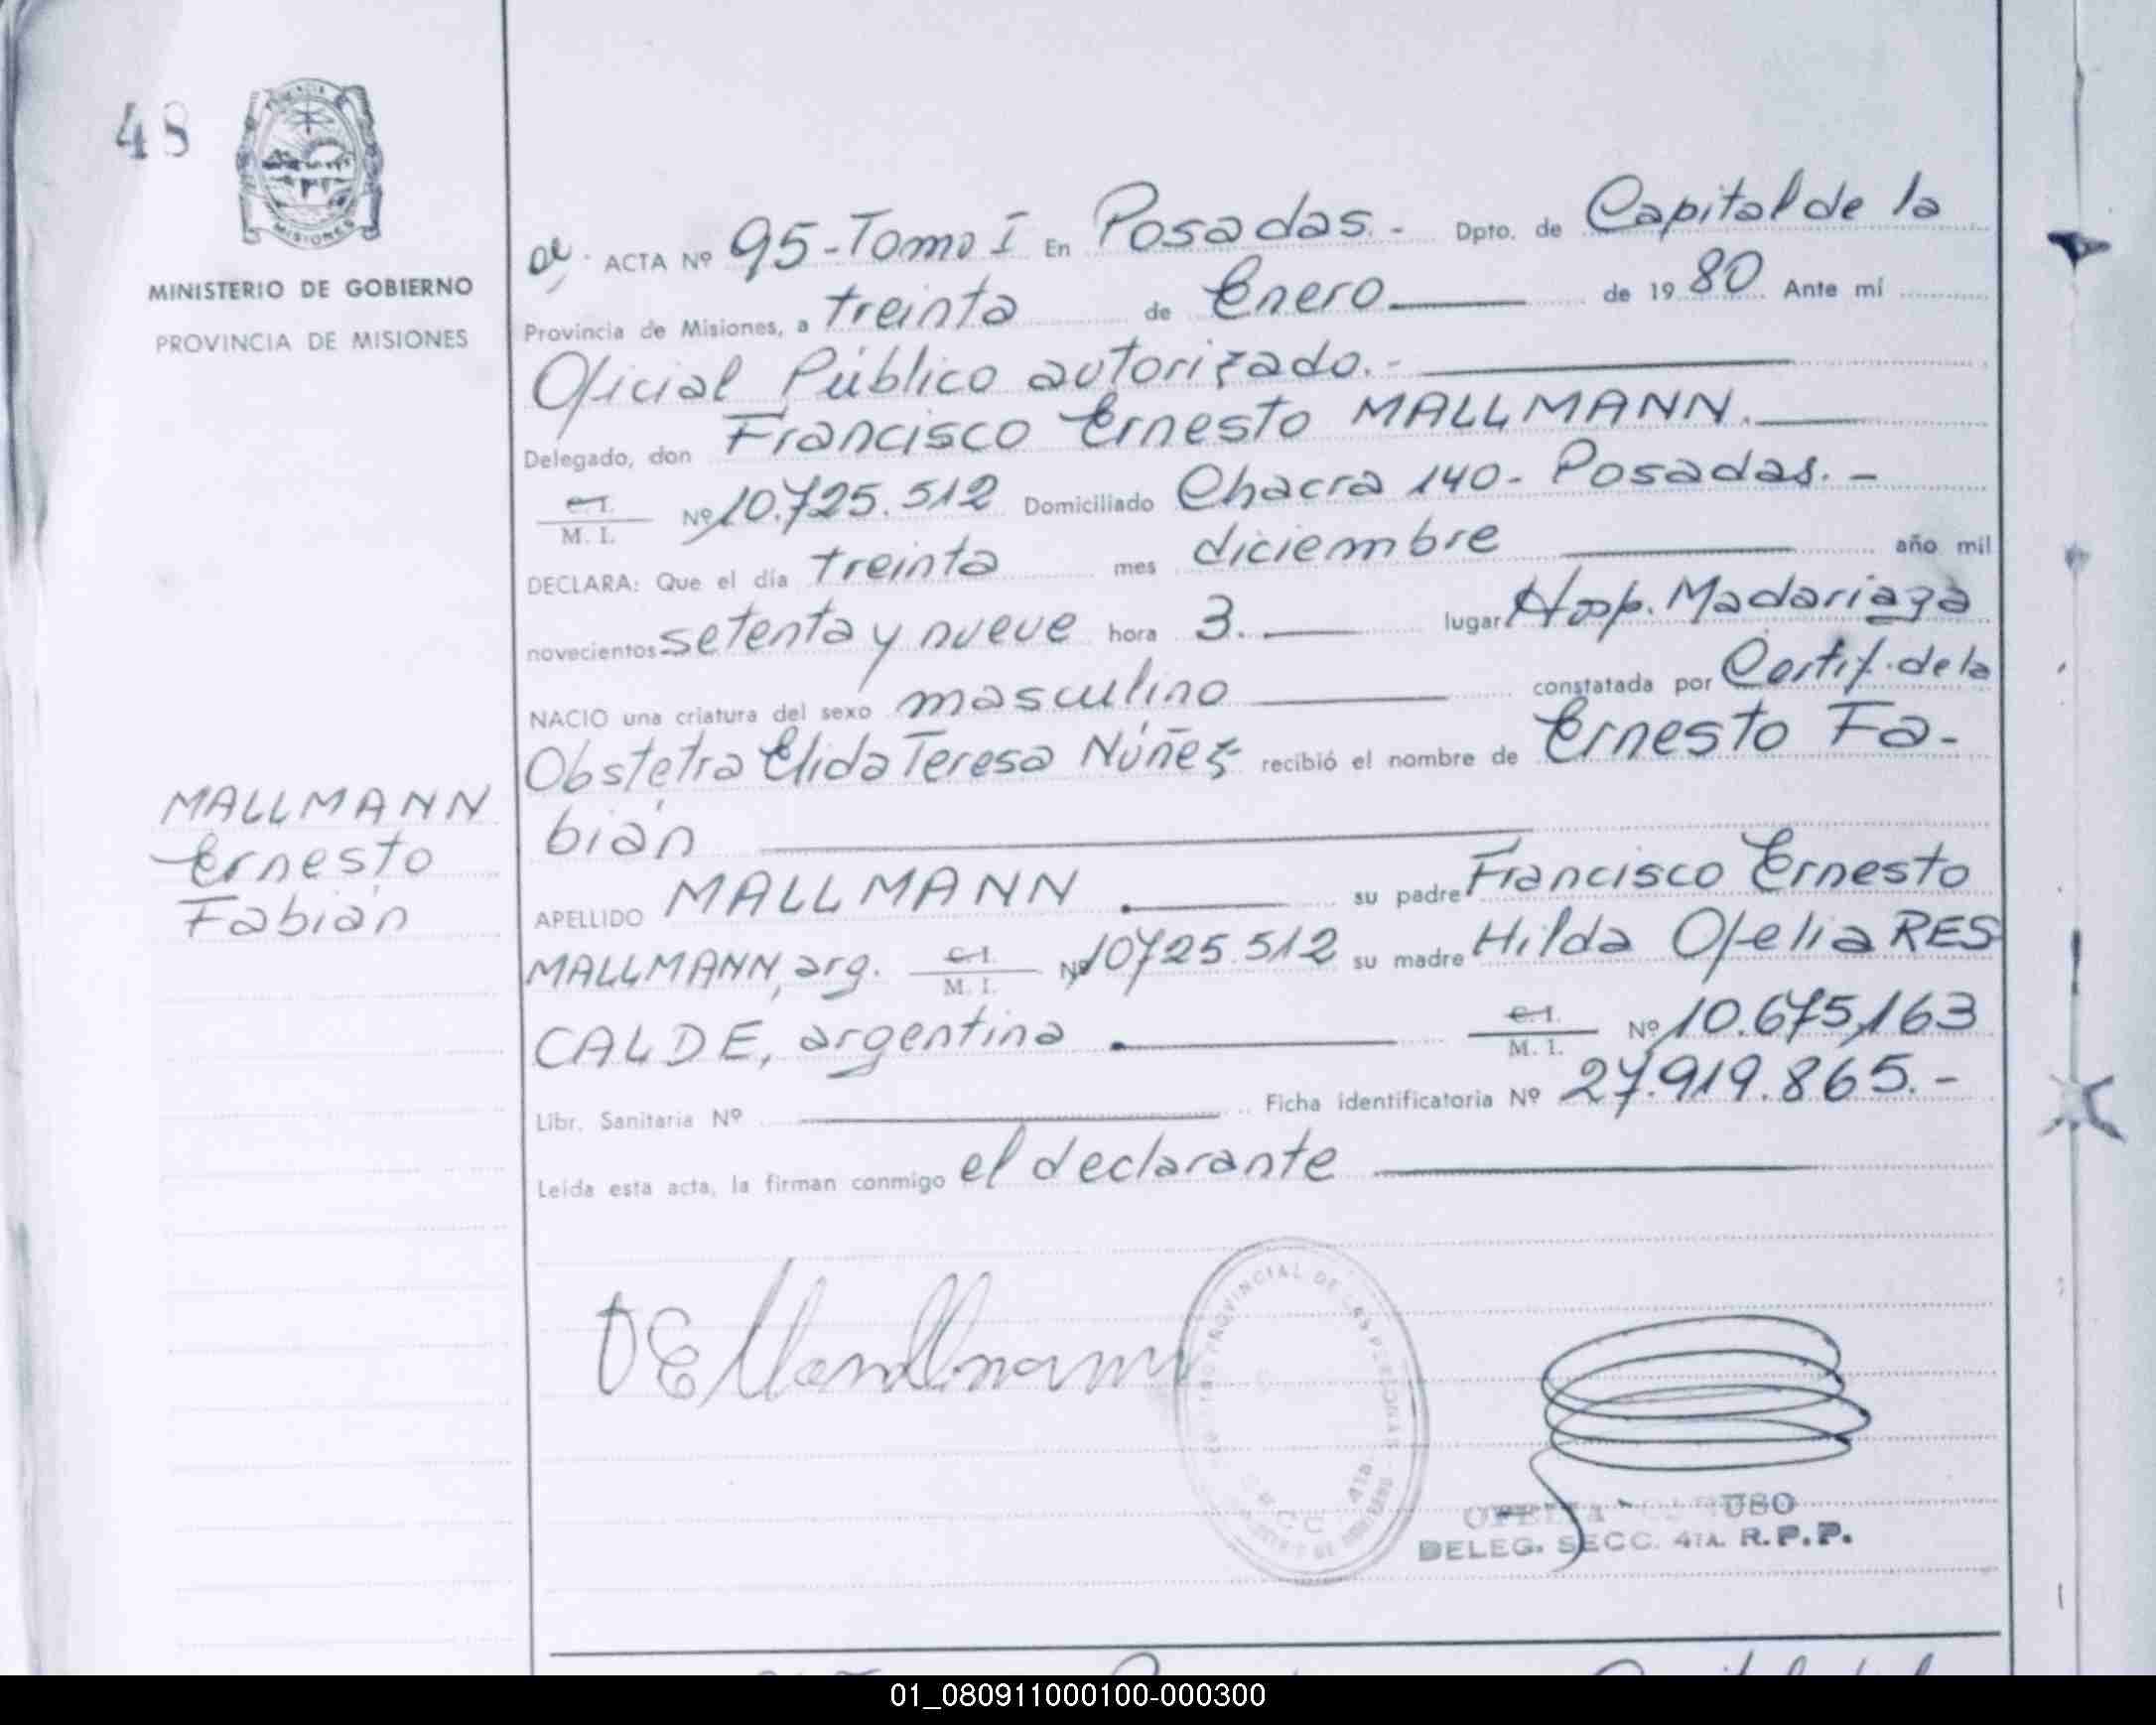 48
MISIONES
MINISTERIO DE GOBIERNO
PROVINCIA DE MISIONES
ACTA Nº 95-Tomo I En Posadas.- Dpto. de Capital de la
Provincia de Misiones, a treinta de Enero de 1980 Ante mí
Oficial Público autorizado.-
Delegado, don Francisco Ernesto MALLMANN.
C.I. M. I. Nº 10.725.512 Domiciliado Chacra 140- Posadas.-
DECLARA: Que el día treinta mes diciembre año mil
novecientos setenta y nueve hora 3. lugar Hosp. Madariaga
NACIO una criatura del sexo masculino constatada por Certif. de la
Obstetra Elida Teresa Núñez recibió el nombre de Ernesto Fa-
bián
MALLMANN
Ernesto
Fabián
APELLIDO MALLMANN su padre Francisco Ernesto
MALLMANN, arg. C.I. M. I. Nº 10725.512 su madre Hilda Ofelia RES
CALDE, argentina C.I. M. I. Nº 10.675,163
Libr. Sanitaria Nº Ficha identificatoria Nº 27.919.865.-
Leída esta acta, la firman conmigo el declarante
PROVINCIAL DE LAS PERSONAS
4ta.
OFELIA
DELEG. SECC. 4TA. R.P.P.
01_080911000100-000300